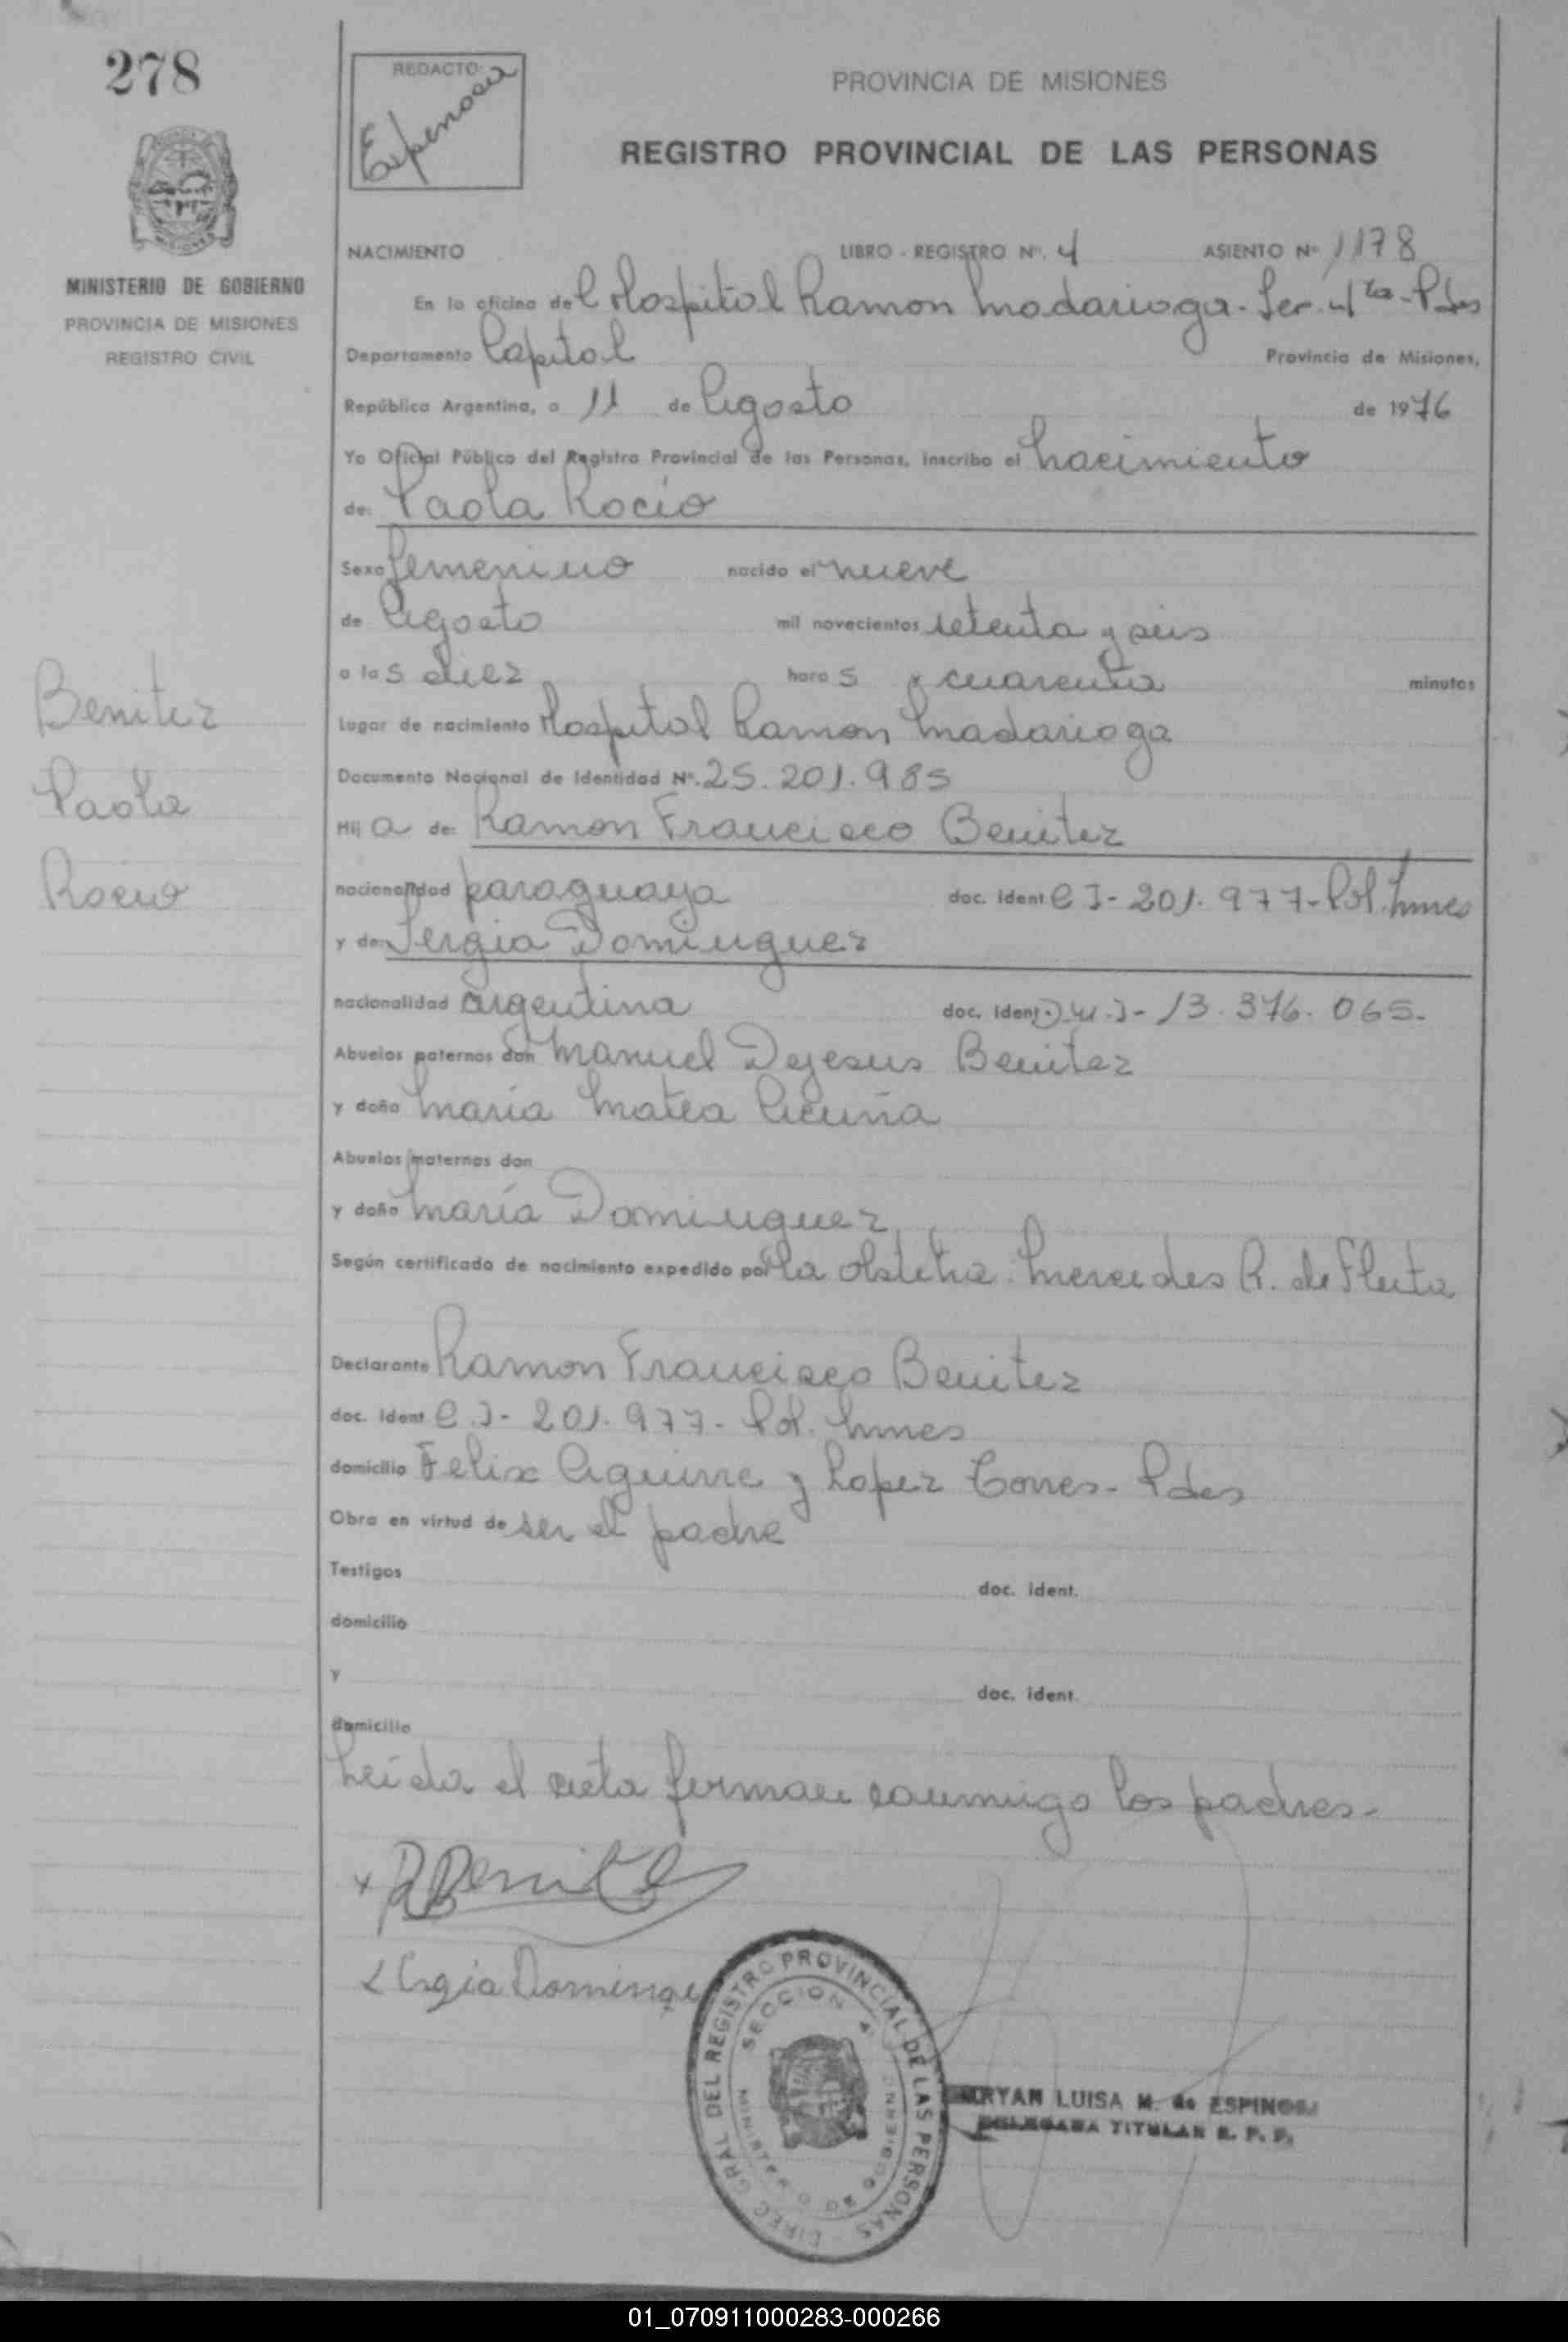 278
REDACTO:
Espenosa
PROVINCIA DE MISIONES
REGISTRO PROVINCIAL DE LAS PERSONAS
MINISTERIO DE GOBIERNO
PROVINCIA DE MISIONES
REGISTRO CIVIL
NACIMIENTO LIBRO - REGISTRO Nº. 4 ASIENTO Nº 1178
En la oficina del Hospital Ramon Madariaga - Ser. 4ta - Pdas
Departamento Capital Provincia de Misiones,
República Argentina, a 11 de Agosto de 1976
Yo Oficial Público del Registro Provincial de las Personas, inscribo el Nacimiento
de: Paola Rocío
Sexo femenino nacido el nueve
de Agosto mil novecientos setenta y seis
a las diez horas y cuarenta minutos
Lugar de nacimiento Hospital Ramon Madariaga
Documento Nacional de Identidad Nº. 25.201.985
Hija de: Ramon Francisco Benitez
nacionalidad paraguaya doc. ident C I - 201.977 - Pol. Mnes
y de: Sergia Dominguez
nacionalidad argentina doc. ident. D.N.I - 13.376.065.
Abuelos paternos don Manuel Dejesus Benitez
y doña María Matea Acuña
Abuelos maternos don
y doña María Dominguez
Según certificado de nacimiento expedido por la obstetra: Mercedes R. de Fleita
Declarante Ramon Francisco Benitez
doc. ident C.I - 201.977 - Pol. Mnes
domicilio Felix Aguirre y Lopez Torres - Pdas
Obra en virtud de ser el padre
Testigos doc. ident.
domicilio
y doc. ident.
domicilio
Leída el acta firman conmigo los padres -
Benitez
Paola
Rocio
x RBenitez
DIREC. GRAL. DEL REGISTRO PROVINCIAL DE LAS PERSONAS
SECCION 4
MINISTERIO DE GOBIERNO
MIRYAN LUISA M. de ESPINOSA
DELEGADA TITULAR R. P. P.
01_070911000283-000266